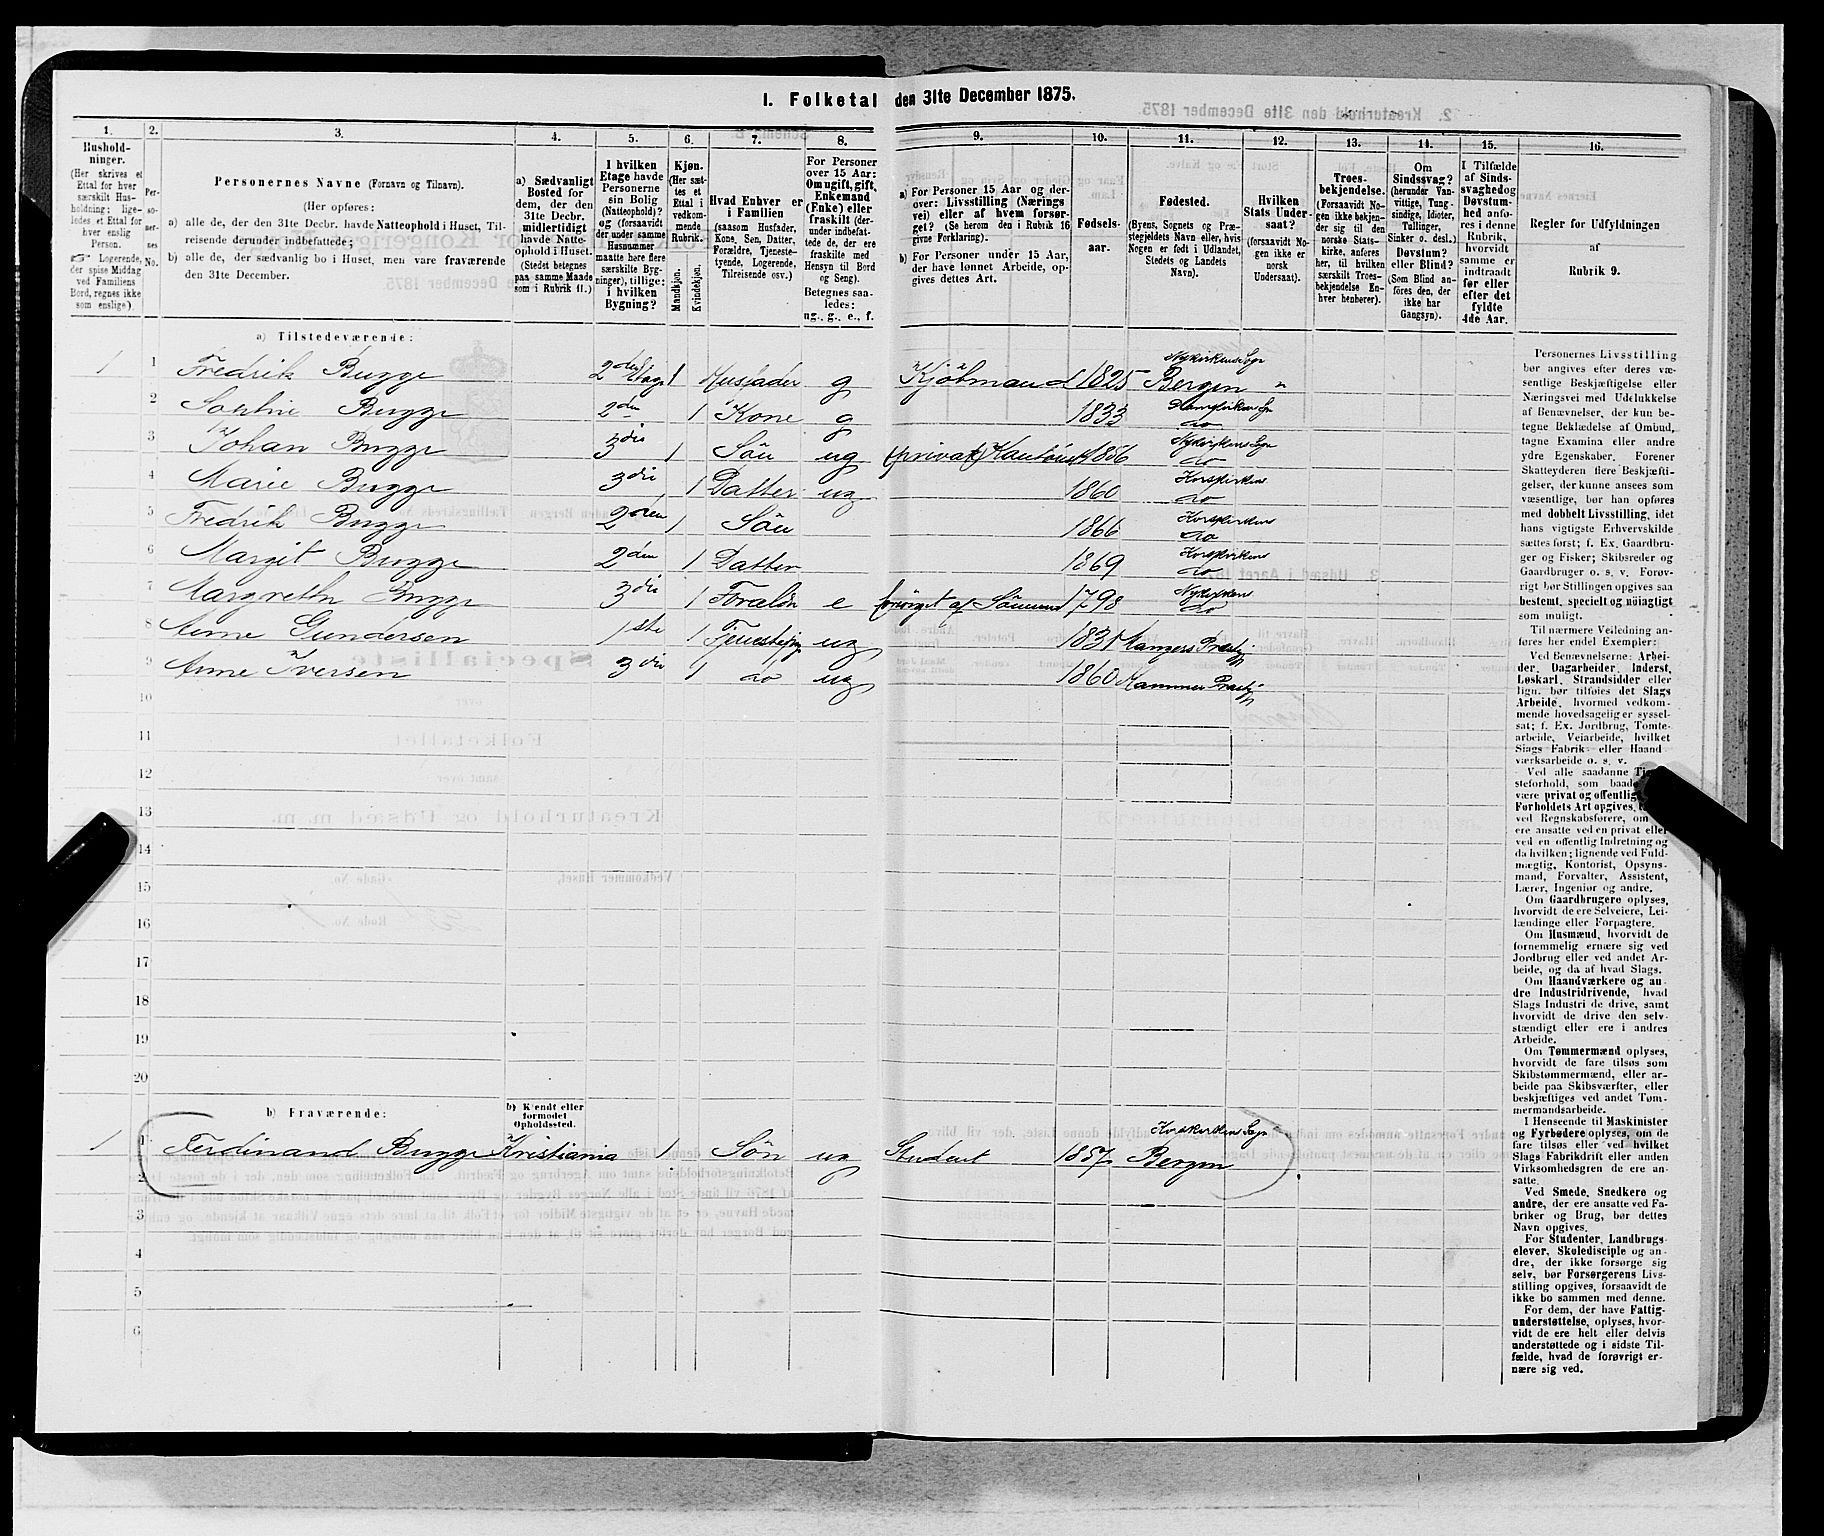 1. Folketal den 31te December 1875.
1. 2. 3. 4. 5. 6. 7. 8. 9. 10. 11. 12. 13. 14. 15. 16.
Husholdninger.
(Her skrives et
Ettal for hver
særskilt Husholdning;
ligeledes et Ettal for
hver enslig
Person.
Logerende,
der spise Middag
ved Familiens
Bord, regnes ikke
som enslige).
Personernes No.
Personernes Navne (Fornavn og Tilnavn).
(Her opføres:
a) alle de, der den 31te Decbr. havde Natteophold i Huset, Tilreisende
derunder indbefattede;
b) alle de, der sædvanlig bo i Huset, men vare fraværende
den 31te December.
a) Sædvanligt
Bosted for
dem, der den
31te Decbr.
midlertidigt
havde Natteophold
i Huset.
(Stedet betegnes
paa samme Maade
som i Rubrik 11.)
I hvilken
Etage havde
Personerne
sin Bolig
(Natteophold)?
og (forsaavidt
der under samme
Husnummer
maatte høre flere
særskilte Bygninger),
tillige:
i hvilken
Bygning?
Kjøn.
(Her sættes
et
Ettal i
vedkommende
Rubrik.)
Mandkjøn.
Kvindekjøn.
Hvad Enhver er
i Familien
(saasom Husfader,
Kone, Søn, Datter,
Forældre, Tjenestetyende,
Logerende,
Tilreisende osv.)
For Personer
over 15 Aar:
Om ugift, gift,
Enkemand
(Enke) eller
fraskilt (derunder
indbefattede
de, der ere
fraskilte med
Hensyn til Bord
og Seng).
Betegnes saaledes:
ug., g., e., f.
a) For Personer 15 Aar og derover:
Livsstilling (Næringsvei)
eller af hvem forsørget?
(Se herom den i Rubrik 16
givne Forklaring).
b) For Personer under 15 Aar,
der have lønnet Arbeide, opgives
dettes Art.
Fødselsaar.
Fødested.
(Byens, Sognets og Præstegjeldets
Navn eller, hvis
Nogen er født i Udlandet,
Stedets og Landets
Navn).
Hvilken
Stats Undersaat?
(forsaavidt Nogen
ikke er
norsk
Undersaat).
Troesbekjendelse.
(Forsaavidt Nogen
ikke bekjender
sig til den
norske Statskirke,
anføres
her, til hvilken
særskilt Troesbekjendelse
Enhver
henhører).
Om
Sindssvag?
(herunder Vanvittige,
Tungsindige,
Idioter,
Tullinger,
Sinker o. desl.)
Døvstum?
eller Blind?
(Som Blind anføres
den, der
ikke har
Gangsyn).
I Tilfælde
af Sindssvaghed
og
Døvstumhed
anføres
i denne
Rubrik,
hvorvidt
samme er
indtraadt
før eller
efter det
fyldte
4de Aar.
Regler for Udfyldningen
af
Rubrik 9.
a) Tilstedeværende:
1 1 Fredrik Bugge 2den Etage 1 Husfader g Kjöbmand 1825 Nykirkens Sogn Bergen "
2 Sophie Bugge 2den 1 Kone g 1833 do
3 Johan Bugge 3die 1 Sön ug (privat) Kontorist 1856 Nykirkens Sogn do
4 Marie Bugge 3die 1 Datter ug 1860 Korskirkens do
5 Fredrik Bugge 2den 1 Sön 1866 Korskirkens do
6 Margit Bugge 2den 1 Datter 1869 Korskirkens do
7 Margrethe Bugge 3die 1 e forsörget af Sönnen 1798 Nykirkens do
8 Anne Gundersen 1ste 1 ug 1831 Mangers Præstgj
9 Anne Iversen 3die 1 do ug 1860 Hammer Præstgj
10
11
12
13
14
15
16
17
18
19
20
b) Fraværende:
b) Kjendt eller
formodet
Opholdssted.
1 1 Ferdinand Bugge Kristiania 1 Sön ug Student 1857 Korskirkens Sogn Bergen
2
3
4
5
6
Personernes Livsstilling
bør angives efter deres væsentlige
Beskjæftigelse eller
Næringsvei med Udelukkelse
af Benævnelser, der kun betegne
Beklædelse af Ombud,
tagne Examina eller andre
ydre Egenskaber. Forener
Skatteyderen flere Beskjæftigelser,
der kunne ansees som
væsentlige, bør han opføres
med dobbelt Livsstilling, idet
hans vigtigste Erhvervskilde
sættes først; f. Ex. Gaardbruger
og Fisker; Skibsreder og
Gaardbruger o. s. v. Forøvrigt
bør Stillingen opgives saa
bestemt, specielt og nöiagtigt
som muligt.
Til nærmere Veiledning anføres
her endel Exempler:
Ved Benævnelserne: Arbeider,
Dagarbeider, Inderst,
Løskarl, Strandsidder eller
lign. bør tilføies det Slags
Arbeide, hvormed vedkommende
hovedsagelig er sysselsat;
f. Ex. Jordbrug, Tomtearbeide,
Veiarbeide, hvilket
Slags Fabrik- eller Haandværksarbeide
o. s. v.
Ved alle saadanne Tjenesteforhold,
som baade
være privat og offentlig,
Forholdets Art opgives,
ved Regnskabsførere, om
ere ansatte ved en privat eller
ved en offentlig Indretning og
da hvilken; lignende ved Fuldmægtig,
Kontorist, Opsynsmand,
Forvalter, Assistent,
Lærer, Ingeniør og andre.
Om Gaardbrugere oplyses,
hvorvidt de ere Selveiere, Leilændinge
eller Forpagtere.
Om Husmænd, hvorvidt de
fornemmelig ernære sig ved
Jordbrug eller ved andet Arbeide,
og da af hvad Slags.
Om Haandværkere og andre
Industridrivende, hvad
Slags Industri de drive, samt
hvorvidt de drive den selvstændigt
eller ere i andres
Arbeide.
Om Tømmermænd oplyses,
hvorvidt de fare tilsøs som
Skibstømmermænd, eller arbeide
paa Skibsværfter, eller
beskjæftiges ved andet Tømmermandsarbeide.
I Henseende til Maskinister
og Fyrbødere oplyses, om de
fare tilsøs eller ved hvilket
Slags Fabrikdrift eller anden
Virksomhedsgren de ere ansatte.
Ved Smede, Snedkere og
andre, der ere ansatte ved Fabriker
og Brug, bør dettes
Navn opgives.
For Studenter, Landbrugselever,
Skoledisciple og andre,
der ikke forsørge sig
selv, bør Forsørgerens Livsstilling
opgives, forsaavidt de
ikke bo sammen med denne.
For dem, der have Fattigunderstøttelse,
oplyses, hvorvidt
de ere helt eller delvis
understøttede og i sidste Tilfælde,
hvad de forøvrigt ernære
sig ved.